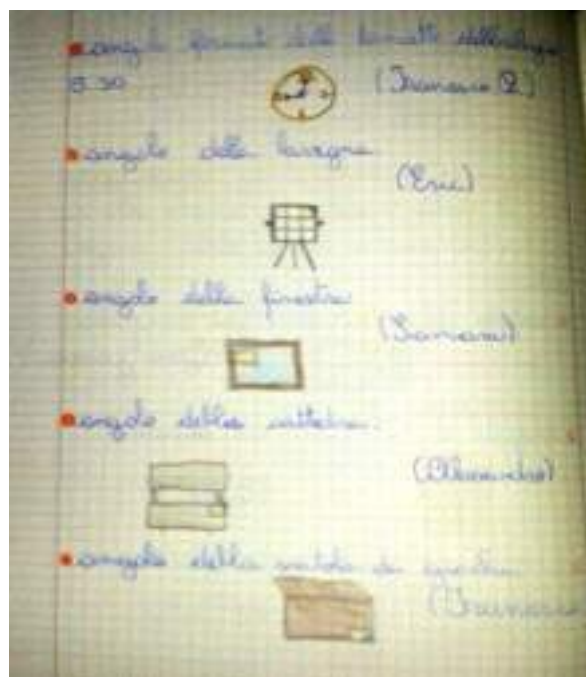 angolo formato dalle lancette dell'orologio
15.30
angolo della lavagna
(Eric)
angolo della finestra
(Tamara)
angolo della cattedra.
(Alessandro)
angolo della scatola da